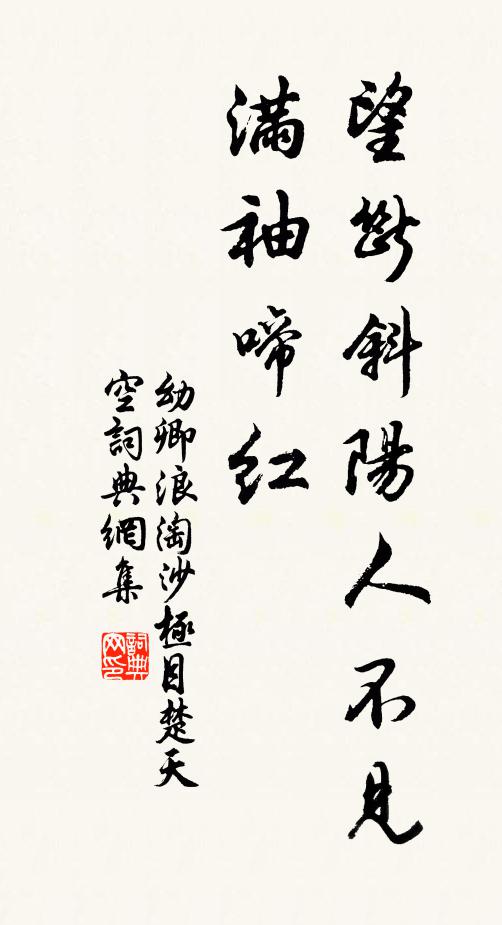 望斷斜陽人不見
滿袖啼紅
幼卿浪淘沙極目楚天
空詞典網集
詞典网印